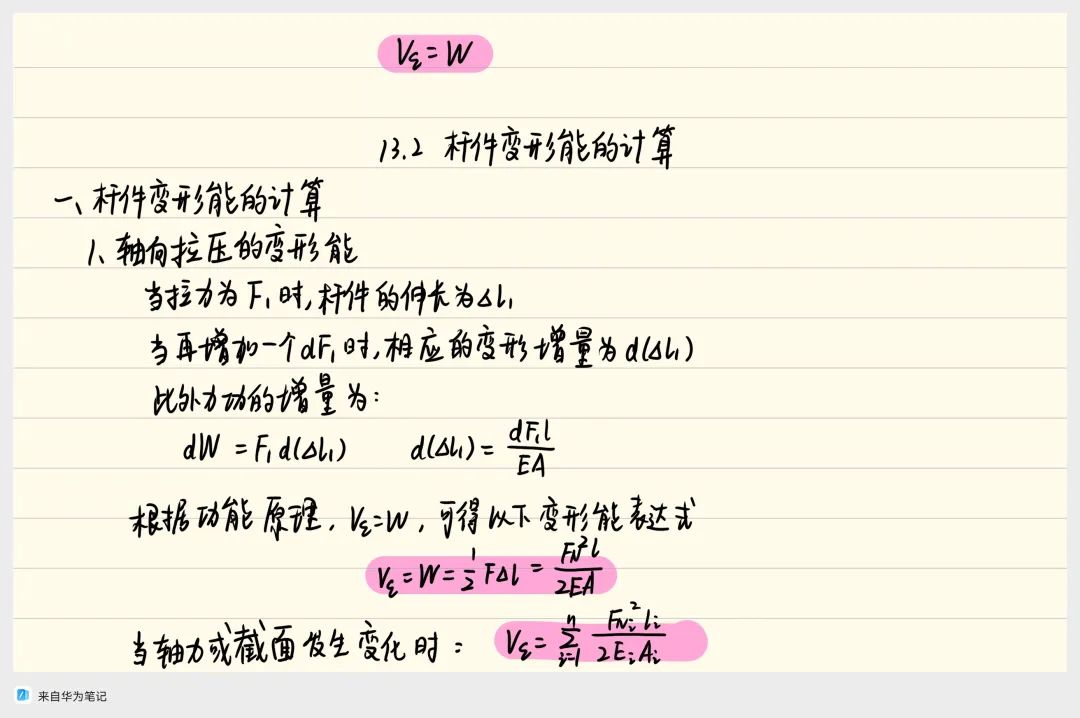 Vε = W
13.2 杆件变形能的计算
一、杆件变形能的计算
1、轴向拉压的变形能
当拉力为F₁时,杆件的伸长为Δl₁
当再增加一个dF₁时,相应的变形增量为d(Δl₁)
此外力功的增量为:
dW = F₁d(Δl₁) d(Δl₁) = dF₁l/EA
根据功能原理, Vε=W, 可得以下变形能表达式
Vε = W = 1/2 FΔl = F_N²l/2EA
当轴力或截面发生变化时: Vε = ∑_{i=1}^{n} F_{Ni}²l_i/2E_iA_i
来自华为笔记